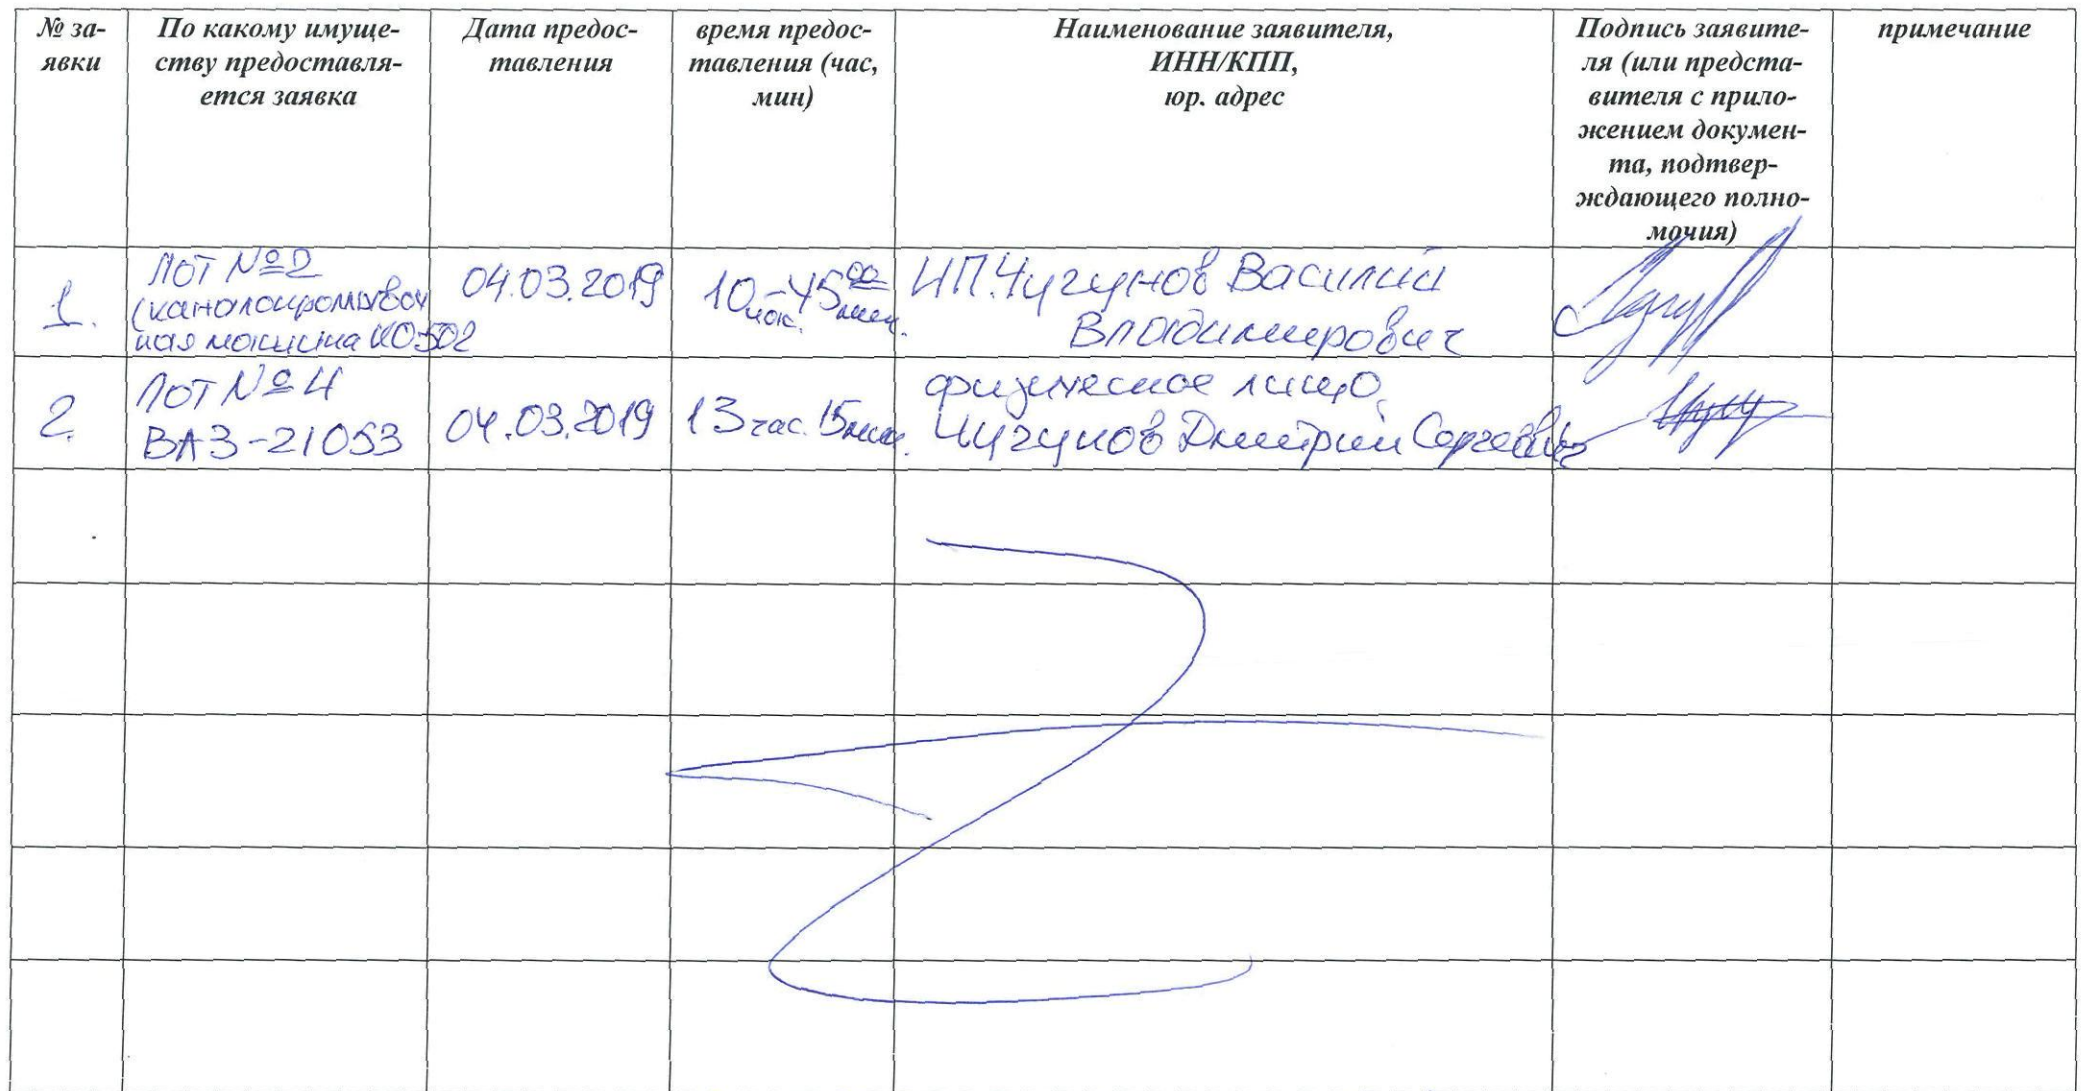 № за-
явки
По какому имуще-
ству предоставля-
ется заявка
Дата предос-
тавления
время предос-
тавления (час,
мин)
Наименование заявителя,
ИНН/КПП,
юр. адрес
Подпись заявите-
ля (или предста-
вителя с прило-
жением докумен-
та, подтвер-
ждающего полно-
мочия)
примечание
1.
ЛОТ №2
(каналопромывоч
ная машина КО-502
04.03.2019
10-45
час. мин.
ИП. Чугунов Василий
Владимирович
2.
ЛОТ №4
ВАЗ-21053
04.03.2019
13 час. 15 мин.
физическое лицо,
Чугунов Дмитрий Сергеевич